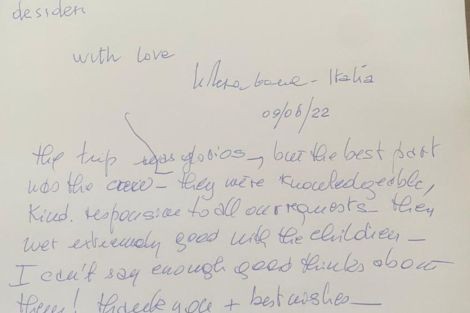 desideri
with love
- Italia
09/06/22
the trip was glorios, but the best part
was the crew - they were knowledgeable,
kind. responsive to all our requests - they
wer extremely good with the children -
I can't say enough good thinks about
them! thank you + best wishes -